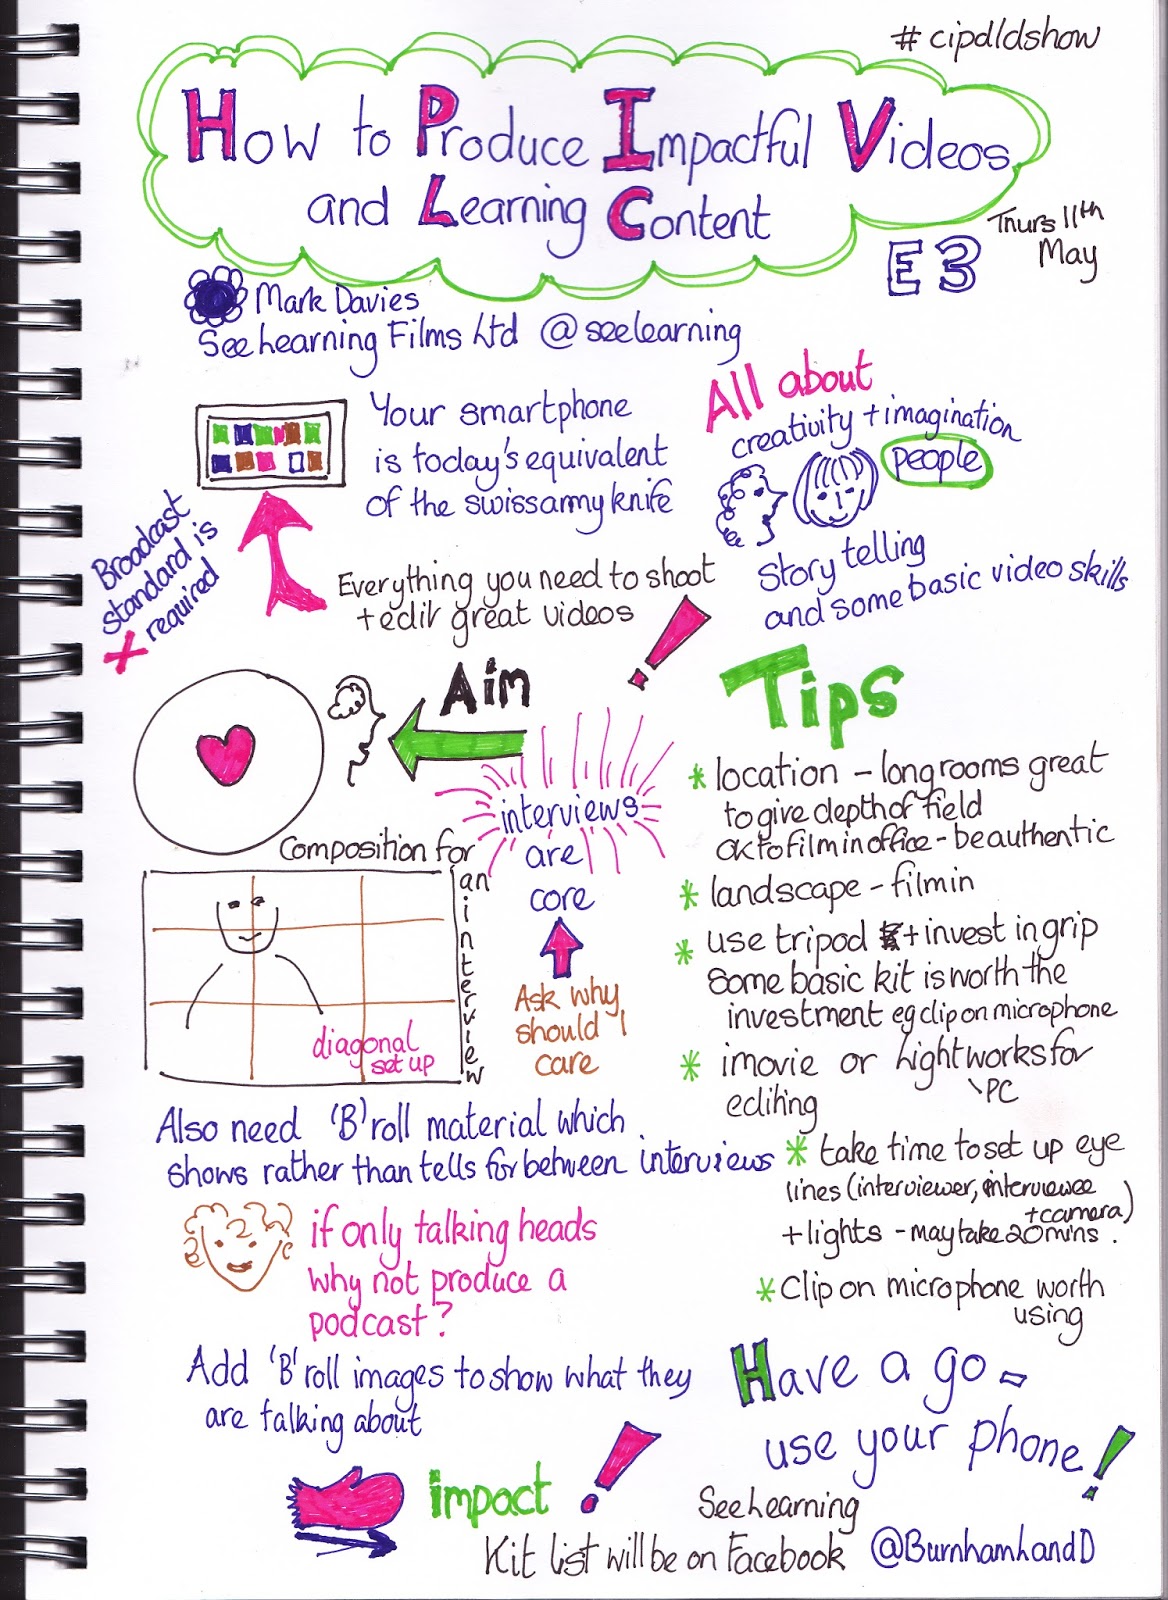 # cipdldshow
How to Produce Impactful Videos
and Learning Content
Thurs 11th
May
E3
Mark Davies
See Learning Films Ltd @seelearning
Your smartphone
is today's equivalent
of the swissarmy knife
All about
creativity + imagination
people
Story telling
and some basic video skills
Broadcast
standard is
X required
Everything you need to shoot
+ edit great videos
!
Aim
interviews
are
core
Ask why
should I
care
Composition for
an
interview
diagonal
set up
Tips
* location - long rooms great
to give depth of field
ok to film in office - be authentic
* landscape - film in
* use tripod + invest in grip
some basic kit is worth the
investment eg clip on microphone
* imovie or Lightworks for
PC
editing
* take time to set up eye
lines (interviewer, interviewee
+ camera)
+ lights - may take 20 mins.
* Clip on microphone worth
using
Also need 'B' roll material which
shows rather than tells for between interviews
if only talking heads
why not produce a
podcast?
Add 'B' roll images to show what they
are talking about
impact !
Have a go -
use your phone!
See Learning
Kit list will be on Facebook
@BurnhamLandD